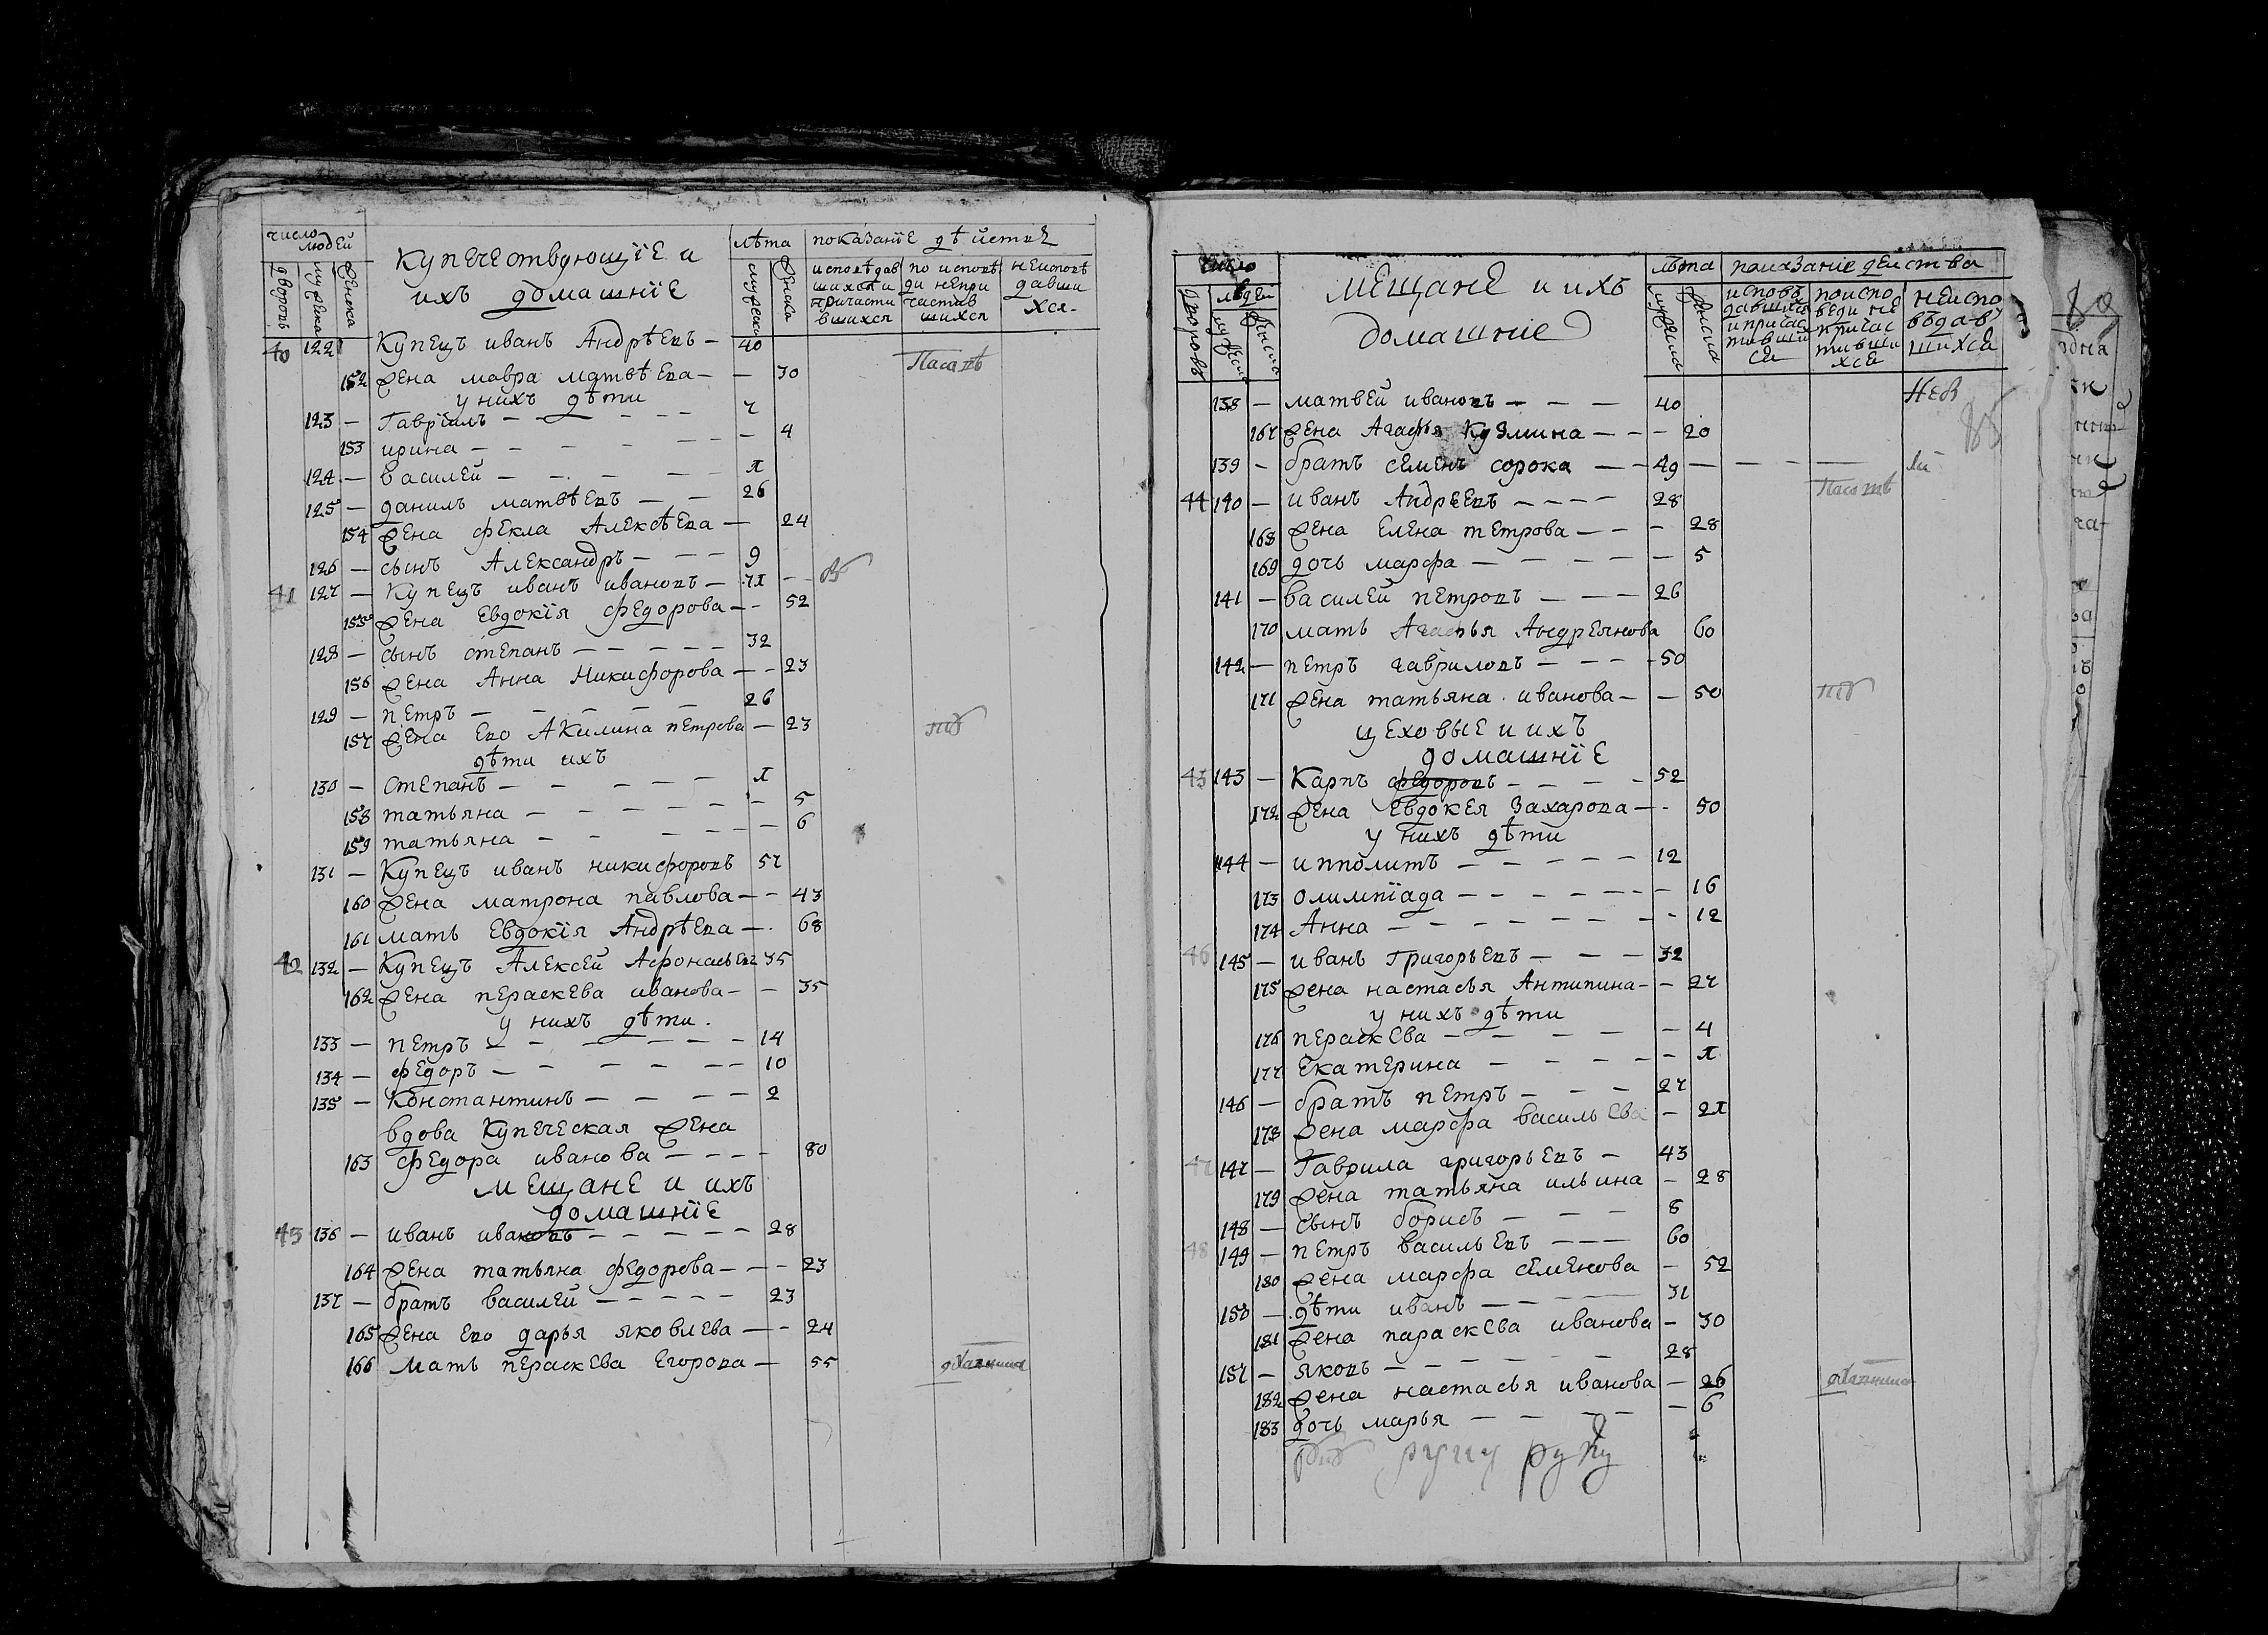 число людей
дворовъ
мужеска
женска
купечествующіе и
ихъ домашніе
лѣта
мужеска
женска
показаніе дѣйства
исповѣдав
шихся и
причасти
вшихся
по исповѣ
ди непри
частив
шихся
неисповѣ
давши
хся
40 122 купецъ иванъ Андрѣевъ — 40
152 жена мавра матвѣева — — 30
у нихъ дѣти
123 — Гавріилъ — — — — 7
153 ирина — — — — — — 4
124 — василей — — — — —
125 — данилъ матвѣевъ — — 26
154 жена фекла Алексѣева — 24
126 — сынъ Александръ — — — 9
41 127 — купецъ иванъ ивановъ —
155 жена Евдокія федорова — — 52
128 — сынъ степанъ — — — — — 32
156 жена Анна Никифорова — — 23
129 — петръ — — — — — 26
157 жена его Акилина петрова — 23
дѣти ихъ
130 — степанъ — — — — —
158 татьяна — — — — — — — 5
159 татьяна — — — — — — 6
131 — купецъ иванъ никифоровъ 57
160 жена матрона павлова — — 43
161 мать Евдокія Андрѣева — 68
42 132 — купецъ Алексей Афонасьевъ 35
162 жена пераскева иванова — — 35
у нихъ дѣти.
133 — петръ — — — — — — 14
134 — федоръ — — — — — — 10
135 — константинъ — — — — 2
вдова купеческая жена
163 федора иванова — — — — 80
мещане и ихъ
домашніе
43 136 — иванъ ивановъ — — — — — 28
164 жена татьяна федорова — — — 23
137 — братъ василей — — — — — 23
165 жена его дарья яковлева — — 24
166 мать пераскева Егорова — 55
число
людей
дворовъ
мещане и ихъ
домашніе
лѣта
показаніе деиства
исповѣ
давшихся
и причас
тивши
ся
по испо
веди не
причас
тивши
хся
неиспо
вѣдав
шихся
138 — матвей ивановъ — — — 40
167 жена Агафья Кузмина — — — 20
139 — братъ семенъ сорока — — 49 — — — —
44 140 — иванъ Андреевъ — — — — 28
168 жена Елена петрова — — — 28
169 дочь марфа — — — — — 5
141 — василей петровъ — — — 26
170 мать Агафья Андреянова 60
142 — петръ гавриловъ — — — 50
171 жена татьяна иванова — — 50
цеховые и ихъ
домашніе
43 143 — Карпъ федоровъ — — — — 52
172 жена Евдокея Захарова — — 50
у нихъ дѣти
144 — ипполитъ — — — — — 12
173 олимпіада — — — — — — — 16
174 Анна — — — — — — — — 12
46 145 — иванъ Григорьевъ — — — 32
175 жена настасья Антипина — — 27
у нихъ дѣти
176 пераскева — — — — — 4
177 екатерина — — — — —
146 — братъ петръ — — — 27
178 жена марфа васильева —
47 147 — Гаврила григорьевъ — 43
179 жена татьяна ильина — 28
148 — сынъ борисъ — — — 8
48 149 — петръ васильевъ — — — 60
180 жена марфа семенова — 52
150 — дѣти иванъ — — — 31
181 жена параскева иванова — 30
151 — яковъ — — — — — — 28
182 жена настасья иванова — 26
183 дочь марья — — — — — 6
руку